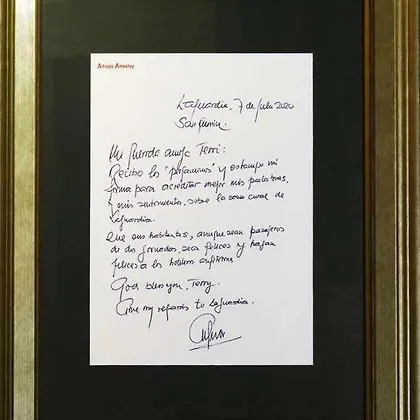 Alfredo Amestoy
Laguardia, 7 de julio 2020
San Fermín.
Mi querida amiga Terri:
Recibo los "pergaminos" y estampo mi
firma para acreditar mejor mis palabras,
y mis sentimientos, sobre la casa rural de
Laguardia.
Que sus habitantes, aunque sean pasajeros
de dos jornadas, sean felices y hagan
felices a los hoteleros
God bless you, Terry.
Give my regards to Laguardia.